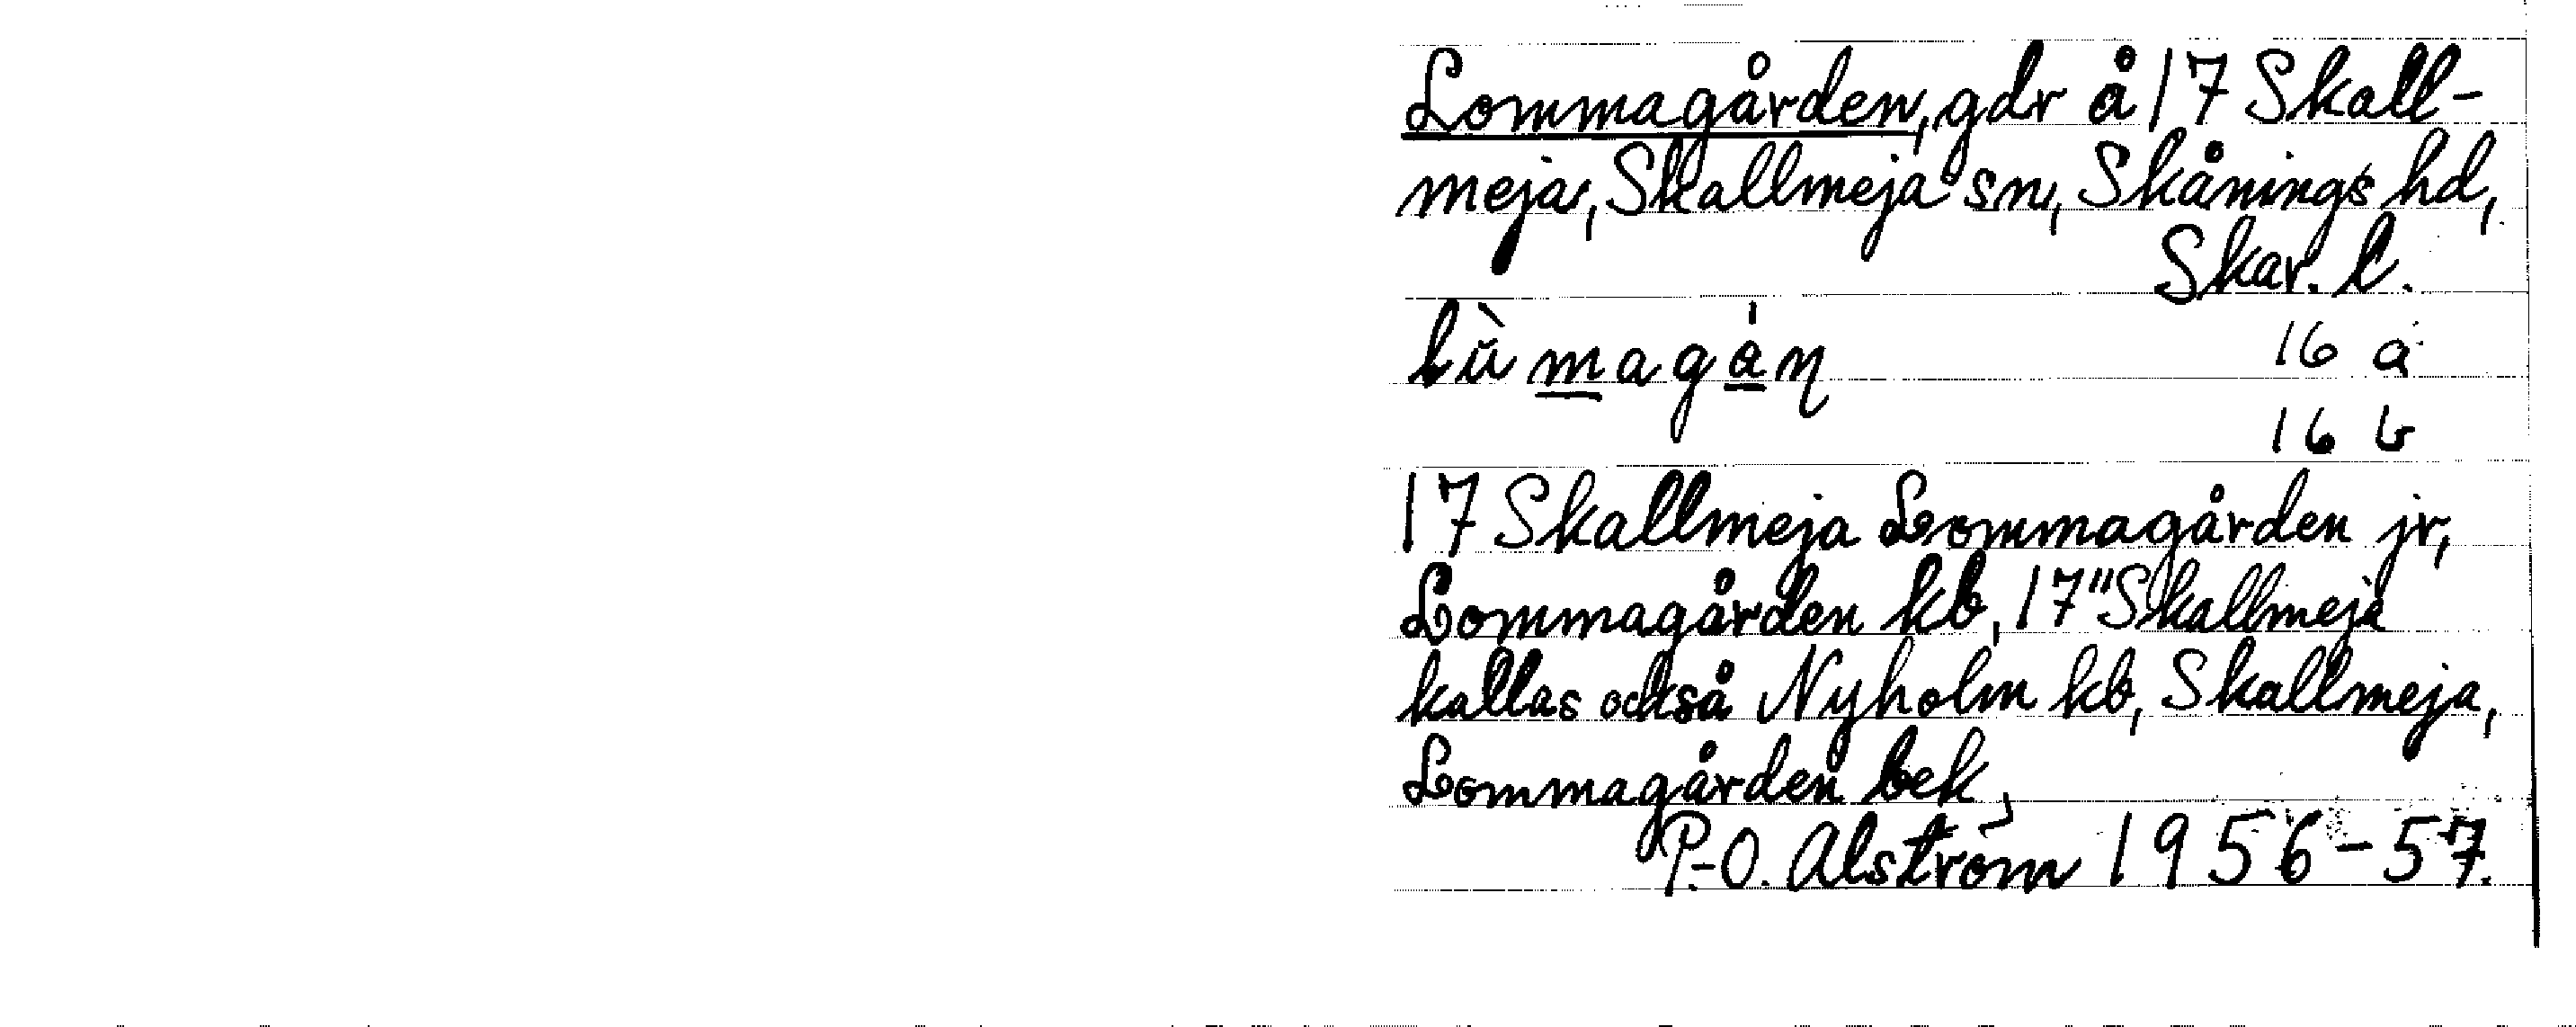 Lommagården, gdr å 17 Skall-
meja, Skallmeja sn, Skånings hd,
Skar. l.
lù magán 16 a
16 b
17 Skallmeja Lommagården jr,
Lommagården kb, 17" Skallmeja
kallas också Nyholm kb, Skallmeja,
Lommagården bek,
P.-O. Alström 1956-57.